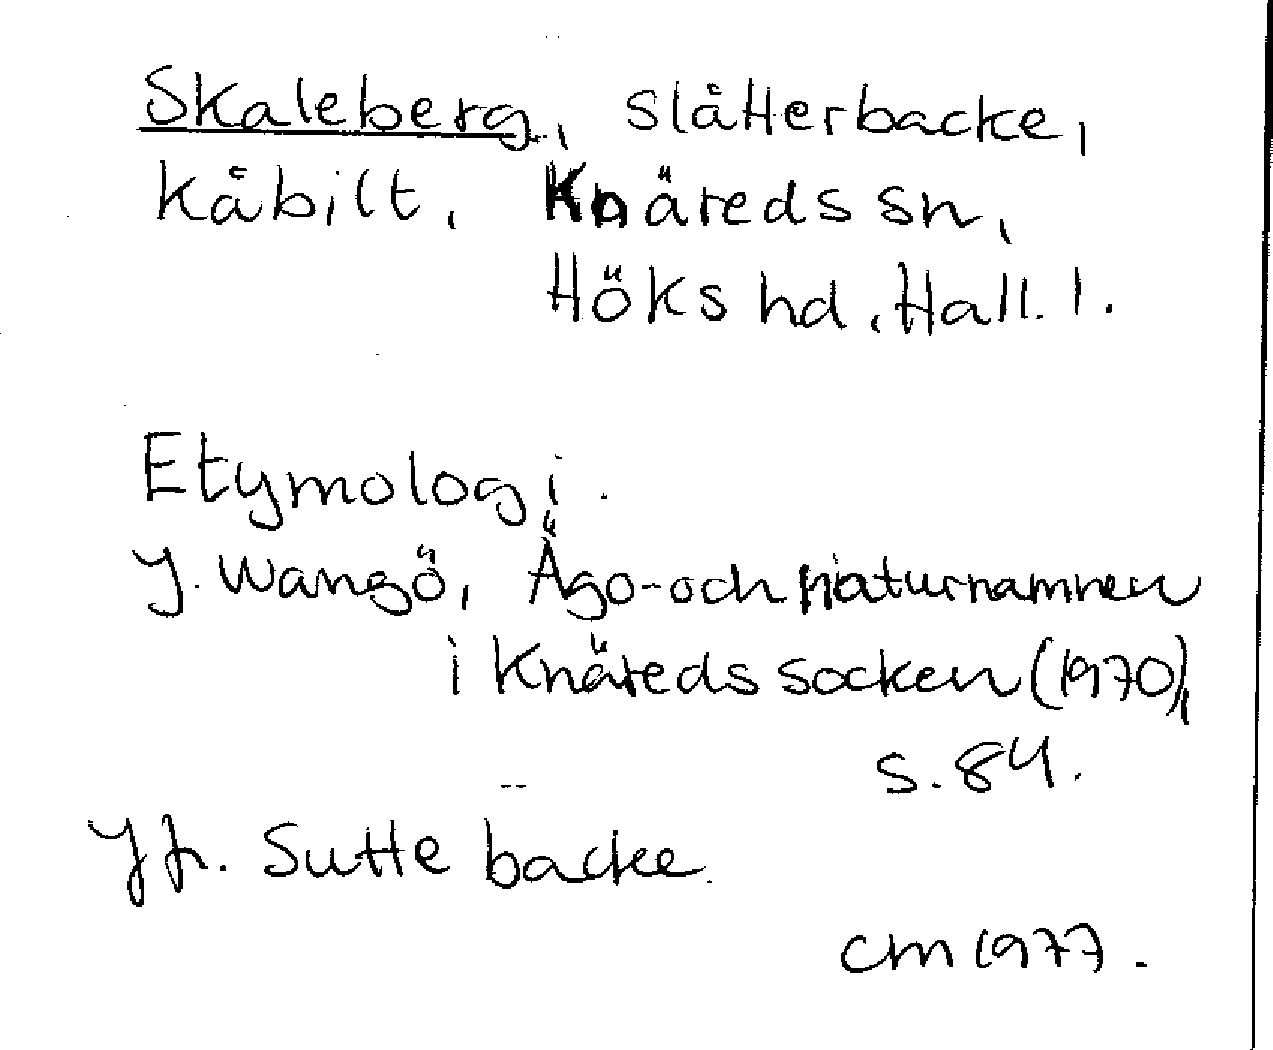 Skaleberg, slåtterbacke,
Kåbilt, Knäreds sn,
Höks hd, Hall. l.
Etymologi.
J. Wangö, Ägo- och naturnamnen
i Knäreds socken (1970),
s. 84.
Jfr. Sutte backe.
CM 1977.